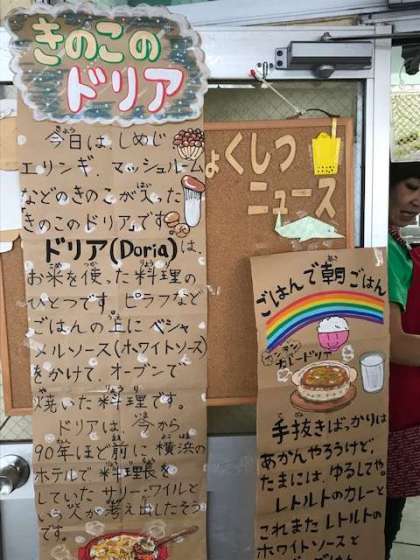 きのこの
ドリア
今日は、しめじ
エリンギ・マッシュルーム
などのきのこが入った
「きのこのドリア」です。
ドリア(Doria)は、
お米を使った料理の
ひとつです。ピラフなど
ごはんの上にベシャ
メルソース(ホワイトソース)
をかけて、オーブンで
焼いた料理です。
ドリアは、今から
90年ほど前に、横浜の
ホテルで料理長を
していたサリー・ワイルと
いう人が考え出したそう
です。
ょくしつ
ニュース
ごはんで朝ごはん
手抜きばっかりは
あかんやろうけど、
たまには、ゆるしてや。
レトルトのカレーと
これまたレトルトの
ホワイトソースと